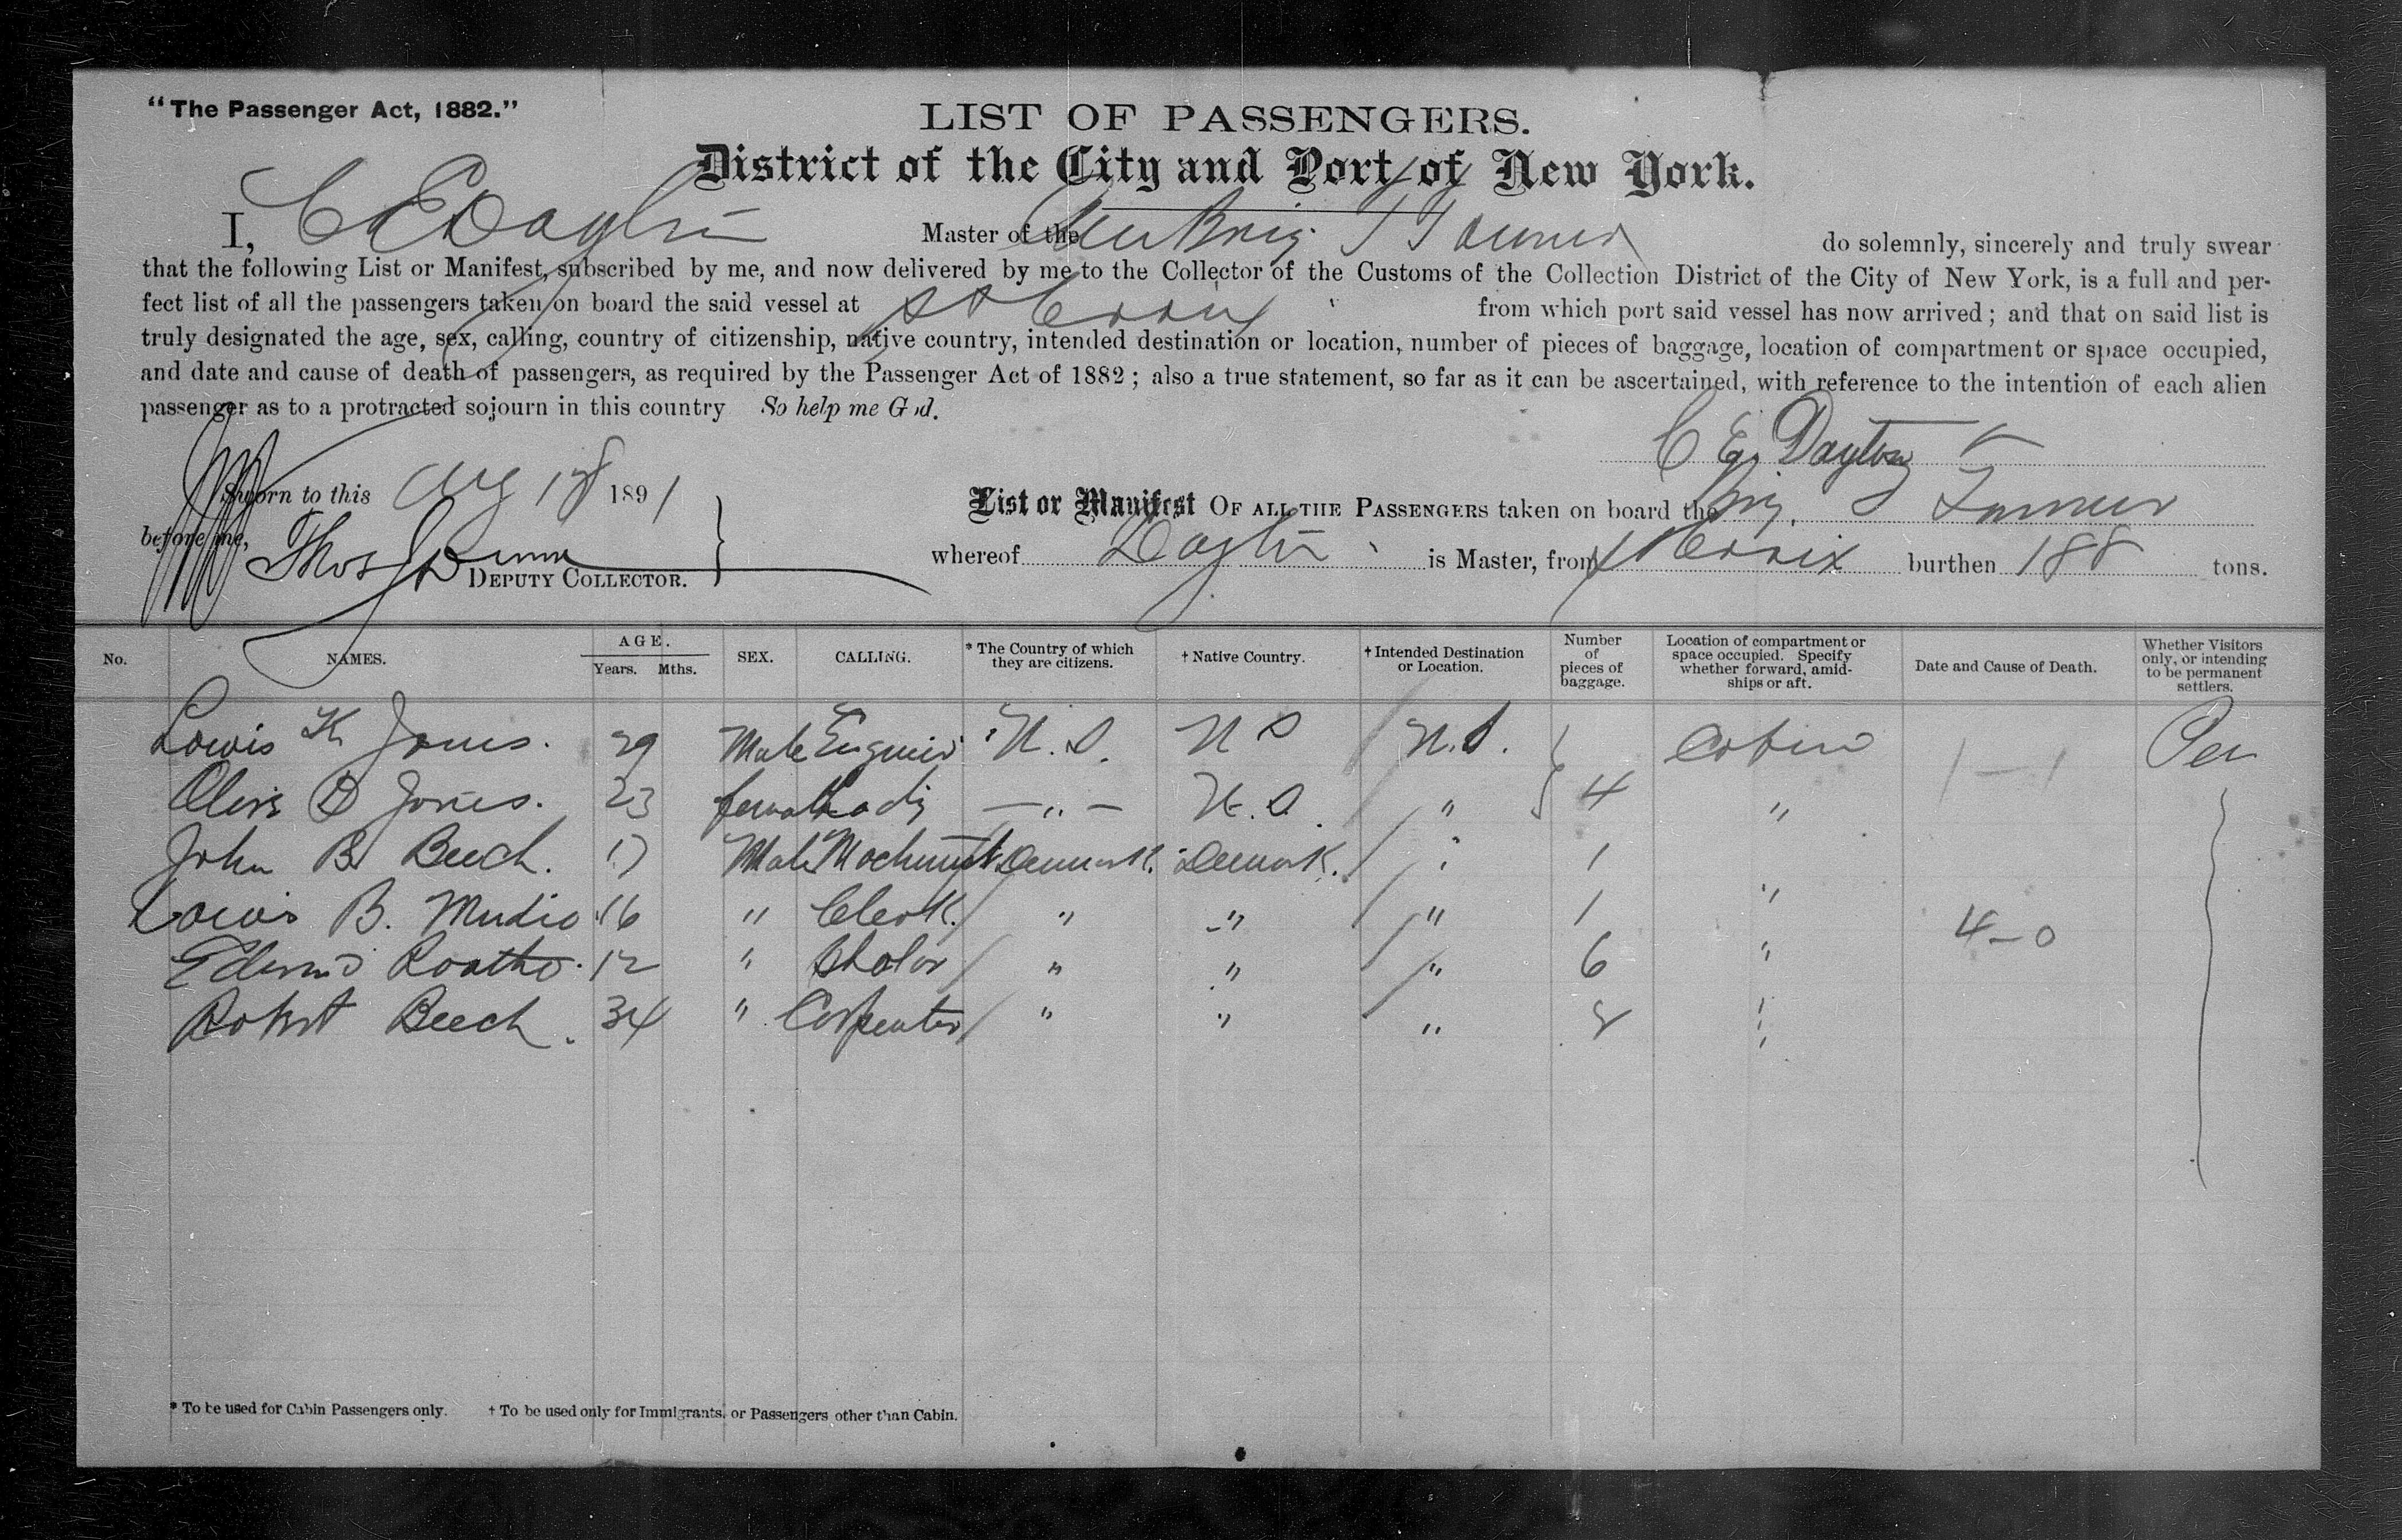 "The Passenger Act, 1882."
LIST OF PASSENGERS.
District of the City and Port of New York.
I, C E Dayton Master of the Am Brig J Turner do solemnly, sincerely and truly swear
that the following List or Manifest, subscribed by me, and now delivered by me to the Collector of the Customs of the Collection District of the City of New York, is a full and per-
fect list of all the passengers taken on board the said vessel at St Croix from which port said vessel has now arrived; and that on said list is
truly designated the age, sex, calling, country of citizenship, native country, intended destination or location, number of pieces of baggage, location of compartment or space occupied,
and date and cause of death of passengers, as required by the Passenger Act of 1882; also a true statement, so far as it can be ascertained, with reference to the intention of each alien
passenger as to a protracted sojourn in this country So help me God.
C E. Dayton
Sworn to this Aug 18 1891
List or Manifest OF ALL THE PASSENGERS taken on board the Brig. J Turner
before me, Thos Dunn
DEPUTY COLLECTOR.
whereof Dayton is Master, from St Croix burthen 188 tons.
No. NAMES. AGE. Years. Mths. SEX. CALLING. * The Country of which they are citizens. † Native Country. † Intended Destination or Location. Number of pieces of baggage. Location of compartment or space occupied. Specify whether forward, amid-ships or aft. Date and Cause of Death. Whether Visitors only, or intending to be permanent settlers.
Lowis K Jones. 29 Male Engineer U.S. U S U.S. Cabin 1-1 Per
D Jones. 23 female Lady — " — U.S. " 4 "
John B Beech. 17 Male Machinist Denmark. Denmark. " 1
Lowis B. Mudie 16 " Clerk " " " 1 " 4-0
12 " Scholar " " " 6 "
Robert Beech. 34 " Carpenter " " " "
* To be used for Cabin Passengers only. † To be used only for Immigrants, or Passengers other than Cabin.